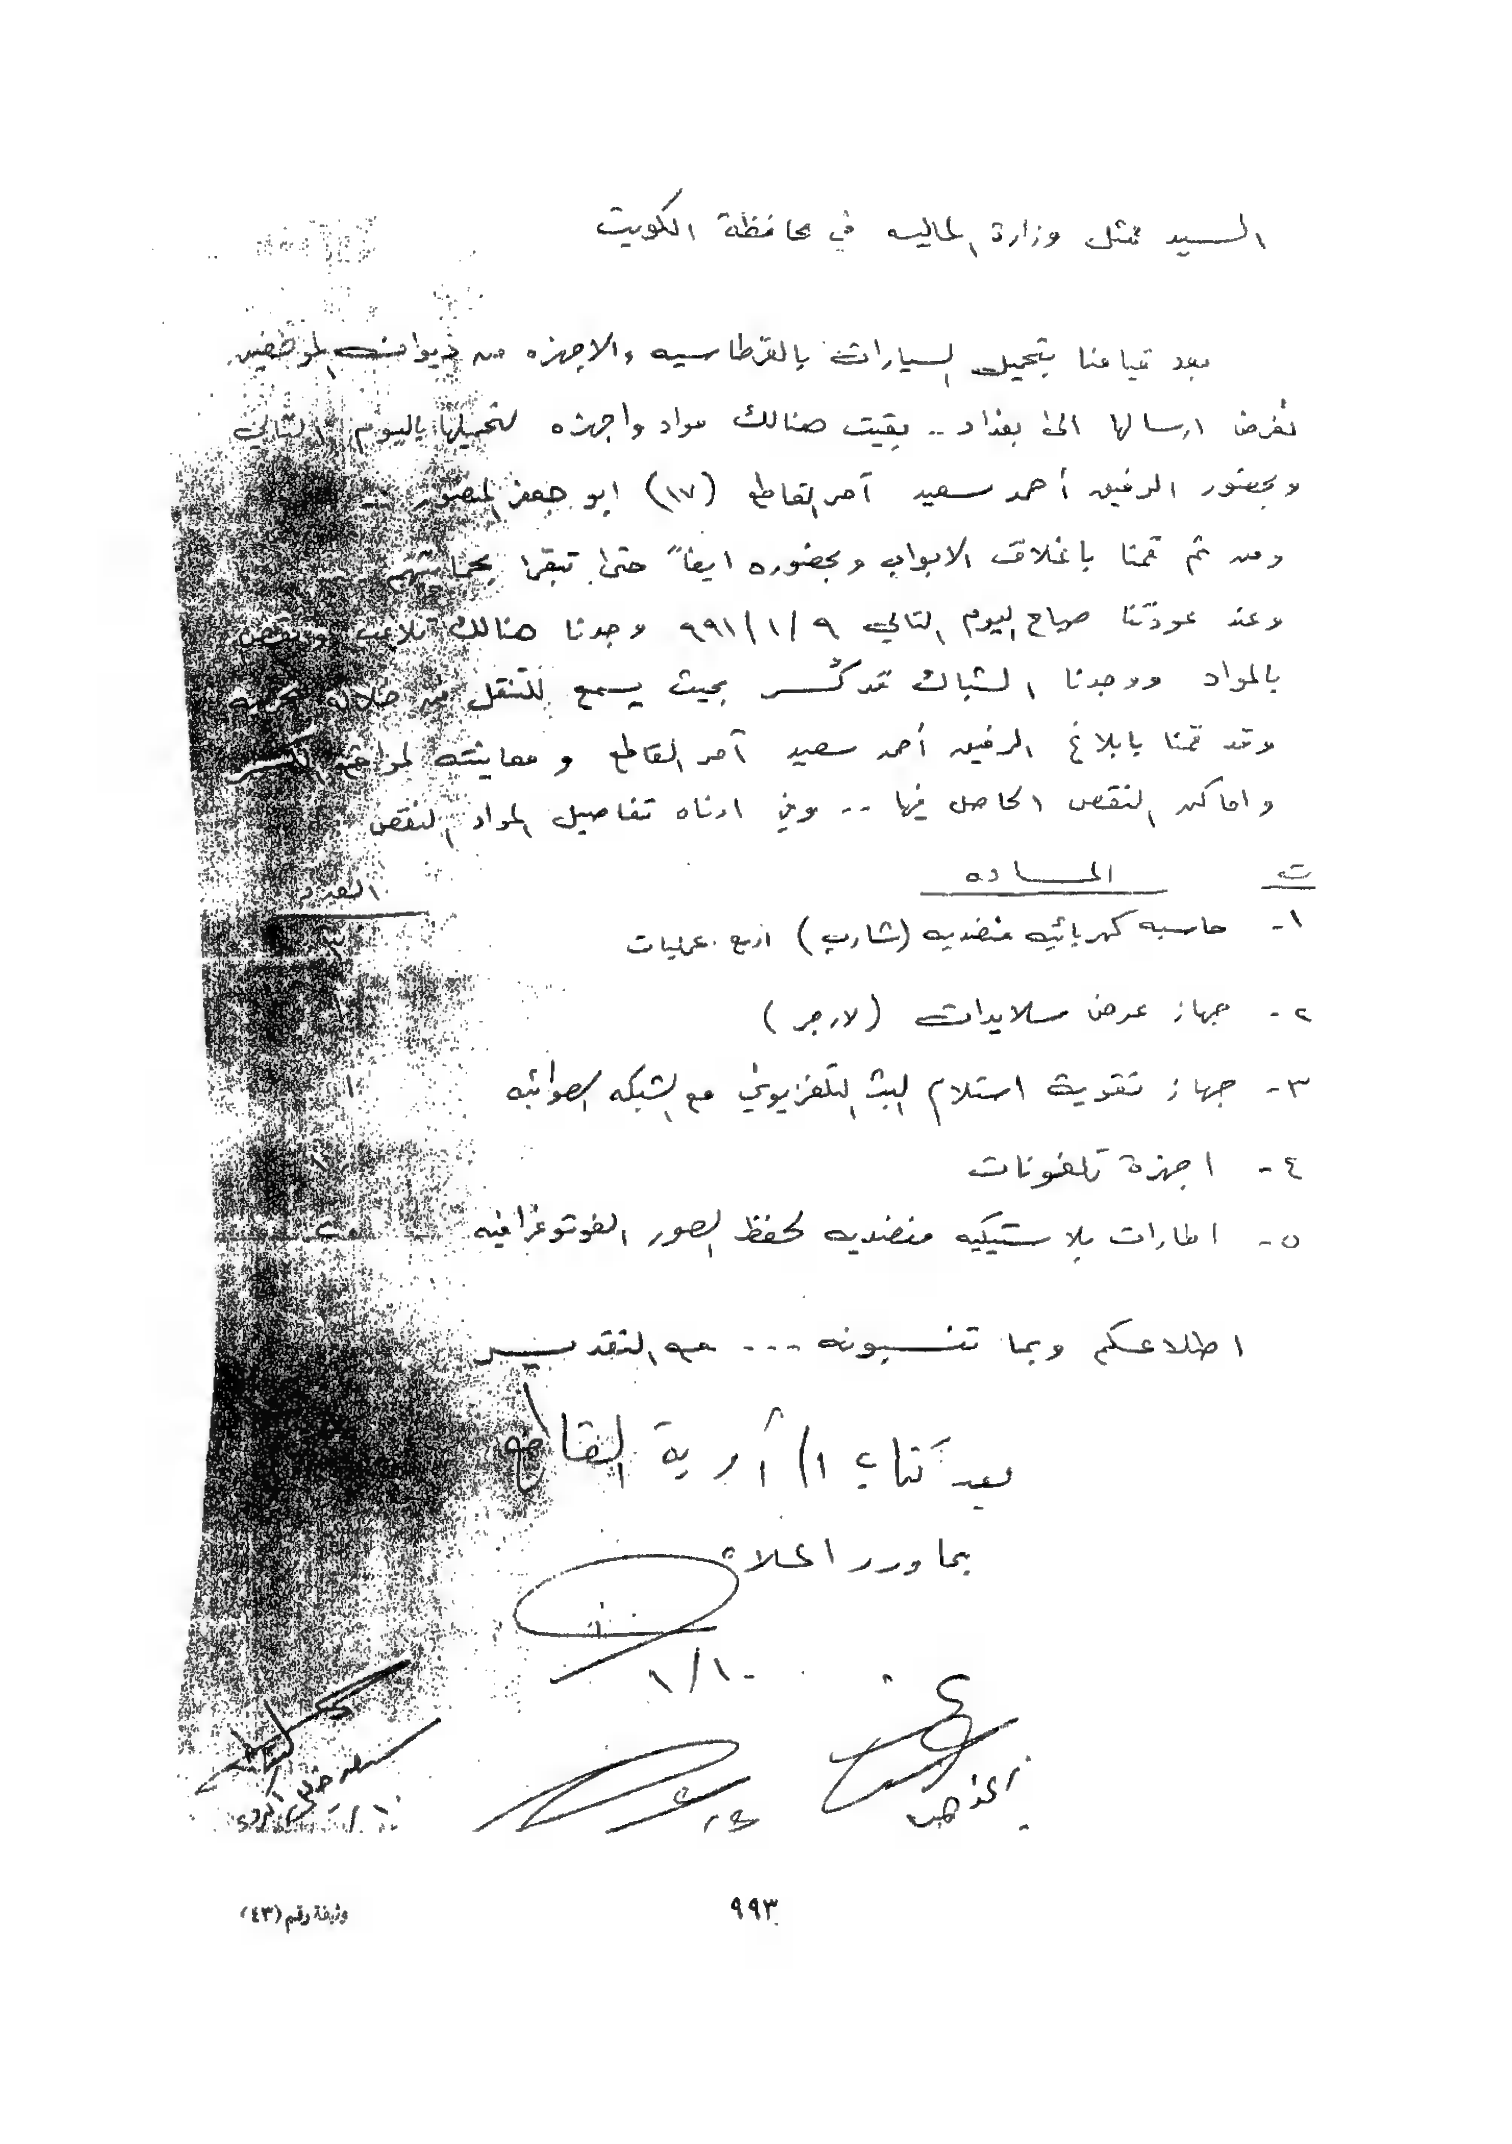 السيد ممثل وزارة المالية في محافظة الكويت
بعد قيامنا بتحميل السيارات بالقرطاسيه والاجهزه من ديوان الموظفين
لغرض ارسالها الى بغداد .. بقيت هنالك مواد واجهزه لتحميلها باليوم التالي
وبحضور الرفيق أحمد سعيد آمر القاطع (١٧) ابو جعفر المنصور ..
ومن ثم قمنا باغلاق الابواب وبحضوره ايضاً حتى تبقى بحمايتهم
وعند عودتنا صباح اليوم التالي ٩/١/٩٩١ وجدنا هنالك تلاعب ونقص
بالمواد ووجدنا الشباك قد كُسر بحيث يسمح للتنقل من خلاله بحريه
وقد قمنا بابلاغ الرفيق أحمد سعيد آمر القاطع ومعاينته لمواقع الكسر
واماكن النقص الحاصل فيها .. وفي ادناه تفاصيل المواد النقص
ت الماده العدد
١- حاسبه كهربائيه منضديه (شارب) اربع عمليات ٣
٢- جهاز عرض سلايدات (لارجر) ١
٣- جهاز تقوية استلام البث التلفزيوني مع الشبكه الهوائيه ١
٤- اجهزة تلفونات
٥- اطارات بلاستيكيه منضديه لحفظ الصور الفوتوغرافيه ٢٠
اطلاعكم وبما تنسبونه ... مع التقدير
يعد كتاب الى آمرية القاطع
بما ورد اعلاه
١/١٠
٩٩٣
وثيقة رقم (٤٣)